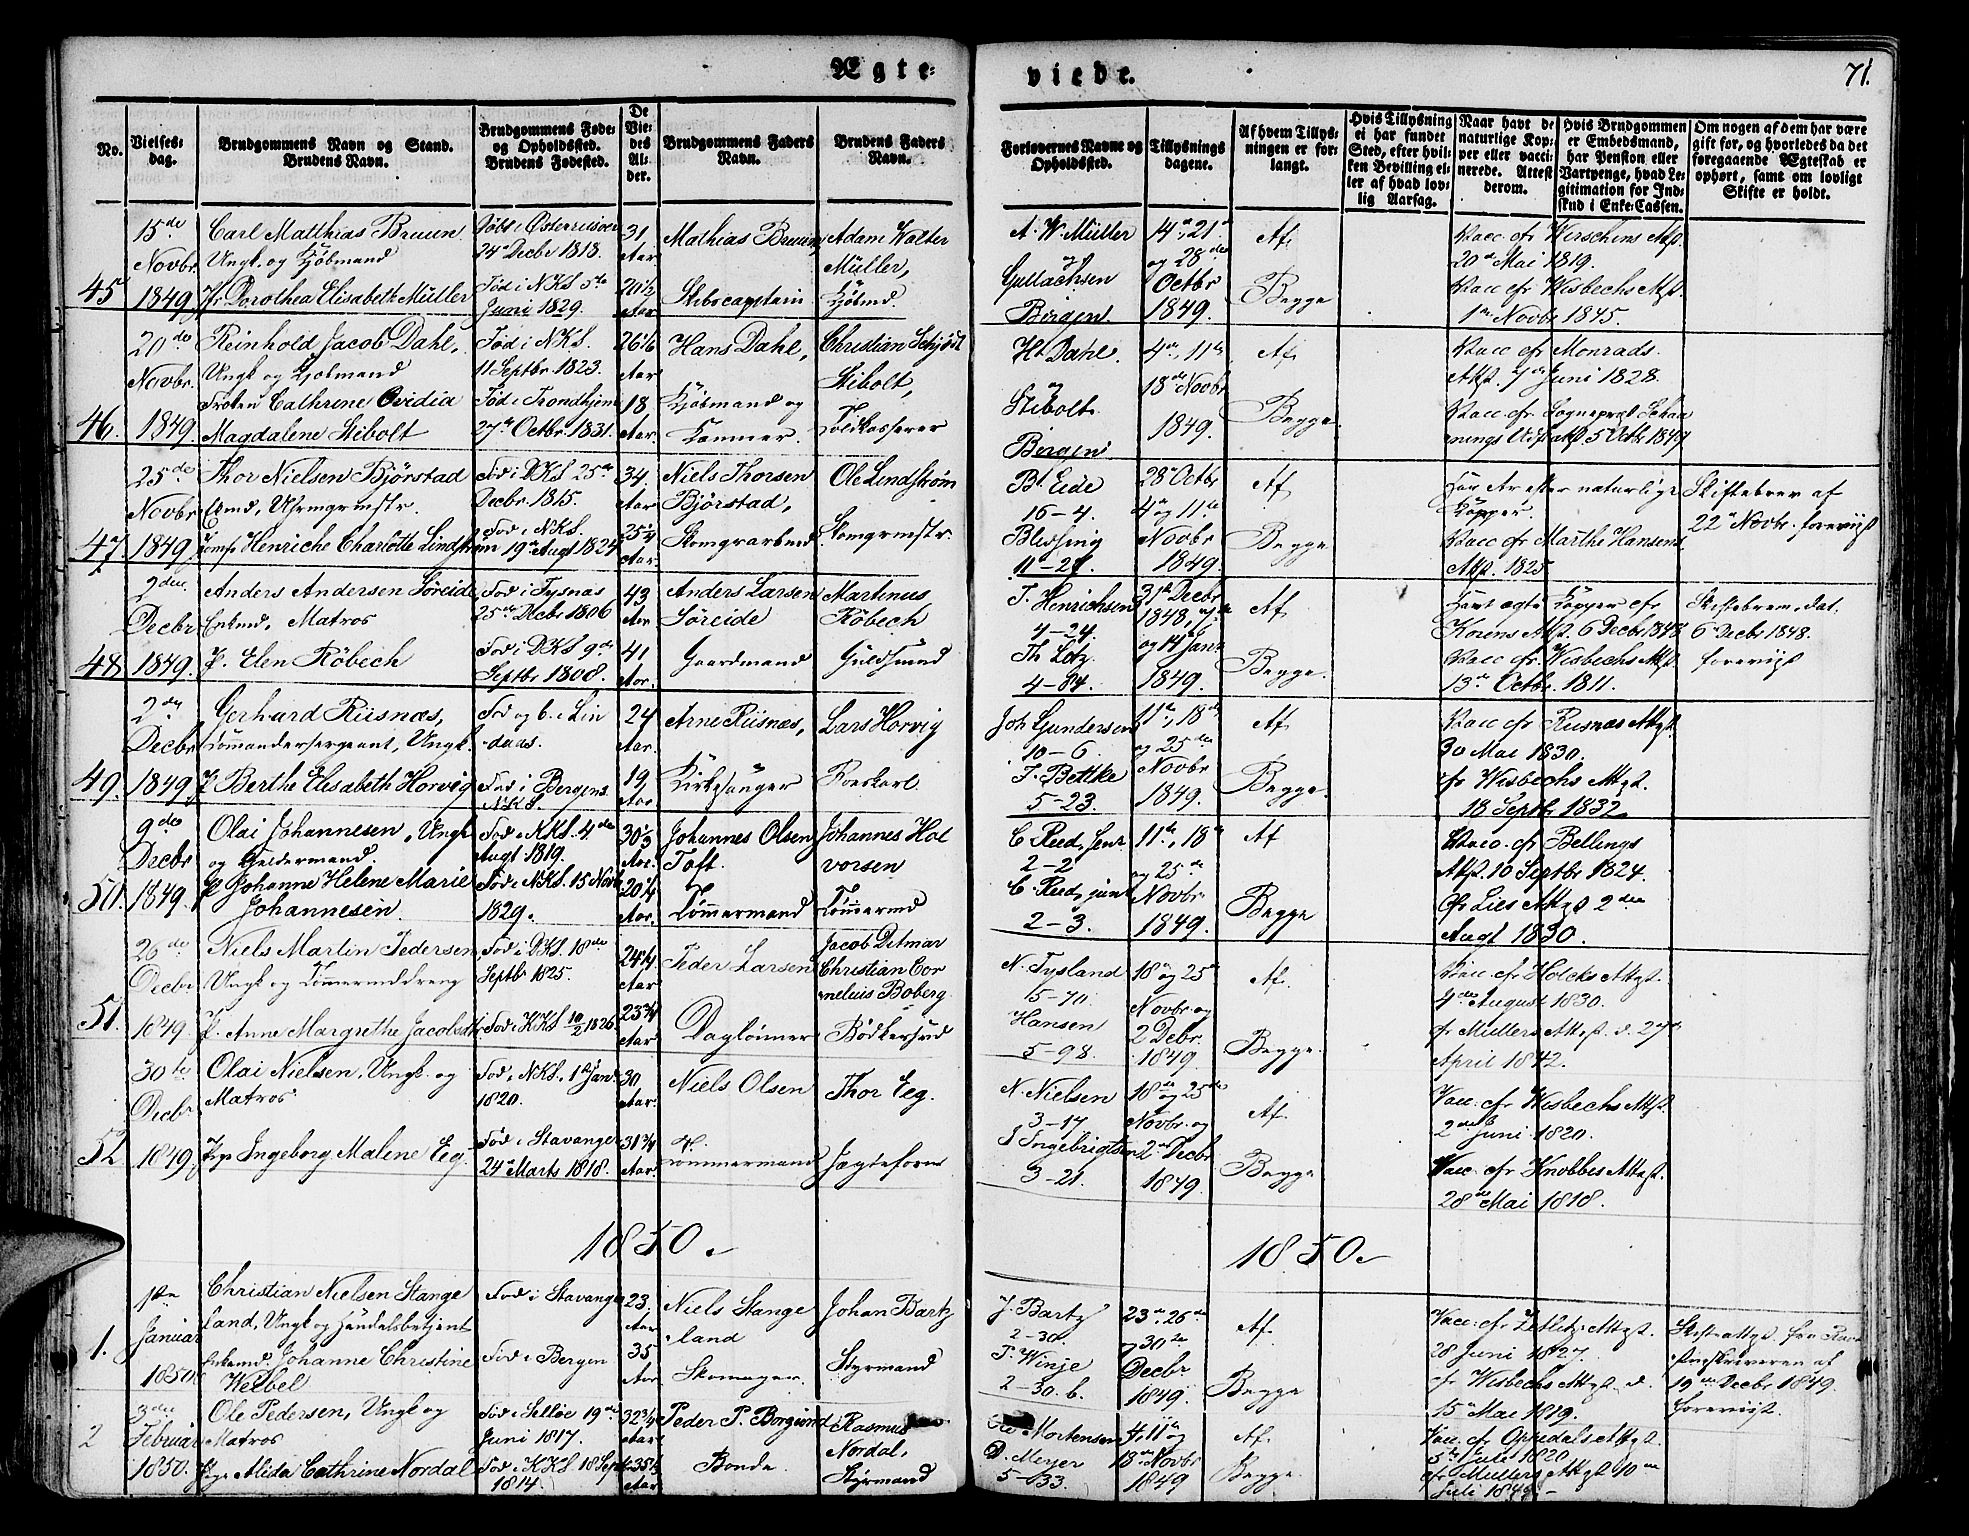 Ægte-
viede.
71.
No.
Vielses-
dag.
Brudgommens Navn og Stand.
Brudens Navn.
Brudgommens Føde-
og Opholdssted.
Brudens Fødested.
De
Vie-
des
Al-
der.
Brudgommens Faders
Navn.
Brudens Faders
Navn.
Forlovernes Navne og
Opholdssted.
Tillysnings
dagene.
Af hvem Tillys-
ningen er for-
langt.
Hvis Tillysning
ei har fundet
Sted, efter hvil-
ken Bevilling el-
ler af hvad lov-
lig Aarsag.
Naar havt de
naturlige Kop-
per eller vacci-
nerede. Attest
derom.
Hvis Brudgommen
er Embedsmand,
har Pension eller
Vartpenge, hvad Le-
gitimation for Ind-
skud i Enke-Cassen.
Om nogen af dem har være
gift for, og hvorledes da det
foregaaende Ægteskab er
ophørt, samt om lovligt
Skifte er holdt.
45
15de
Novbr.
1849
Carl Matthias Bruun
Ungk. og Kjøbmand
Dorothea Elisabeth Müller
Døbt i Østerrisøer
24de Decbr 1818.
Fød i NKS 5te
Juni 1829.
31
Aar
20½
Aar
Mathias Bruun
Skibscaptain
Adam Walter
Müller,
Kjøbmd.
A. W. Müller
og
Gullachsen
Bergen.
14de, 21de
og 28de
Octbr
1849.
Af
Begge
Vacc. efr Wirschens Att.
20de Mai 1819.
Vacc. efr Wisbechs Att.
1ste Novbr 1845.
46.
20de
Novbr.
1849.
Reinhold Jacob Dahl,
Ungk og Kjøbmand
Frøken Cathrine Ovidia
Magdalene Stibolt
Fød i NKS.
11 Septbr 1823.
Fød i Trondhjem
27de Octbr. 1831.
26 1/6
Aar
18
Aar.
Hans Dahl,
Kjøbmand og
Kæmner.
Christian Schjødt
Stibolt,
Toldkasserer
H. Dahl.
og
Stibolt.
Bergen
4de, 11te
18de Novbr
1849.
Af
Begge
Vacc efr Monrads
Att. 7de Juni 1828.
Vacc. efr Sogneprest
5 Octbr 1849
47.
25de
Novbr
1849
Thor Nielsen Bjørstad
Ekmd,
Jomf. Henriche Charlotte Lindstrøm
Fød i DKS. 25de
Decbr 1815.
Fød i NKS.
19de Augt 1824
34.
Aar
25¼
Aar.
Niels Thorsen
Bjørstad,
Ole Lindstrøm
Bt. Eide
16-4.
Blessing
11-27.
28de Octbr
4de og 11te
Novbr
1849.
Af
Begge
Har Ar efter naturlige
Kopper
Vacc. efr Marthe Hansens
Att. 1825
Skiftebrev af
22de Novbr. foreviist
48
2den
Decbr
1849.
Anders Andersen Søreide
Enkmd, Matros
P. Elen Röbech
Fød i Tysnæs
25de Decbr 1806
Fød i DKS 9de
Septbr 1808.
43
Aar
41
Aar.
Anders Larsen
Søreide
Gaardmand
Martinus
Röbech
Guldsmd
T. Henrichsen
4-24.
Th Lotz
4-84.
31te Decbr
1848, 7de
og 14 Janr
1849.
Af
Begge.
Havt ægte Kopper efr
Korens Att. 6 Decbr 1848
Vacc. efr. Wisbechs Att.
13de Octbr. 1811.
Skiftebrev. dat.
6 Decbr 1848.
foreviist
49.
2den
Decbr
1849.
Gerhard Riisnæs,
Comandersergeant, Ungk.
P. Berthe Elisabeth Horvig
Fød og b. i Lin
daas.
Fød i Bergens
NKS.
24
Aar.
19
Aar
Arne Riisnæs,
Kirkesanger
Lars Horvig
Roeskarl
Joh Gundersen
10-6.
J. Bettke
5-23.
11te, 18de
og 25de
Novbr
1849.
Af
Begge.
Vacc. efr Riisnæs Attst.
30 Mai 1830.
efr Wisbechs Attst.
18 Septb 1832
50.
9de
Decbr
1849.
Olai Johannesen, Ungk
og
P. Johanne Helene Marie
Johannesen.
Fød i NKS. 4de
Augt 1819.
Fød i NKS. 15 Novbr
1829.
30⅓
Aar.
20¼
Aar.
Johannes Olsen
Toft.
Tømmermand
Johannes Hal
vorsen
Tømmermd
C. Reed, Senr
2-2
C. Reed, junr
2-3.
11te, 18de
og 25de
Novbr
1849.
Af
Begge
Vacc. efr Bellings
Att. 10 Septbr 1824.
Efr Lies Attst 2den
Augt 1830.
51.
26de
Decbr
1849
Niels Martin Pedersen
Ungk og Tømmermddreng
P. Anne Margrethe Jacobsdtr.
Fød i DKS. 18de
Septbr 1825.
Fød i KKS 10/2 1826.
24¼
Aar
23¾
Aar.
Peder Larsen
Dagløinner
Jacob Ditmar
Christian Cor
nelius Boberg
Bødkersvd
N. Tysland
15-70.
Hansen
5-98.
18 og 25de
Novbr. og
2 Debr.
1849
Af.
Begge.
Vacc. efr Holcks Attst.
4de August 1830.
efr Müllers Attst. d. 27de
April 1842.
52
30te
Decbr
1849.
Olai Nielsen, Ungk. og
Matros.
Pige Ingeborg Malene Eeg.
Fød i NKS. 1ste Jan.
1820.
Fød i Stavanger
24de Marts 1818.
30
Aar.
31¾
Aar.
Niels Olsen
Tømmermand
Thor Eeg.
Jægtefører
N. Nielsen
3-17
J Ingebrigtsen
3-21.
18de og 25de
Novbr. og
2de Decbr
1849.
Af.
Begge
Vacc. efr Wisbechs Attst.
2de Juni 1820.
Vacc. efr Knobbes Attst.
28de Mai 1818.
1850.
1850.
1.
1ste
Januar
1850
Christian Nielsen Stange
land, Ungk og Handelsbetjent
Enkemd. Johanne Christine
Weibel
Fød i Stavanger
Fød i Bergen
23.
Aar
35
Aar
Niels Stange
land
Skomager.
Johan Bartz
Styrmand
J. Bartz
2-30.
P. Winje
2-30. b.
23de, 26de
og 30te
Decbr
1849.
Af.
Begge
Vacc. efr Zetlitz Attst.
28 Juni 1827.
efr Wisbechs Attst. d.
15de Mai 1819.
Skifteattst. fra
af
19de Decbr 1849.
foreviist.
2
3die
Februar
1850.
Ole Pedersen, Ungk og
Matros
Pige Alida Cathrine Nordal
Fød i Selløe 19de
Juni 1817.
Fød i KKS 18 Sept
1814.
32¾
Aar
35⅓
Aar
Peder P. Borgund
Bonde
Rasmus
Nordal,
Styrmand
Mortensen
D. Meyer
5-33.
4, 11te og
18de Novbr
1849
Af.
Begge.
Vacc. efr Opdals Attst.
5te Juli 1820
efr Müllers Attst 10de
Juli 1849.